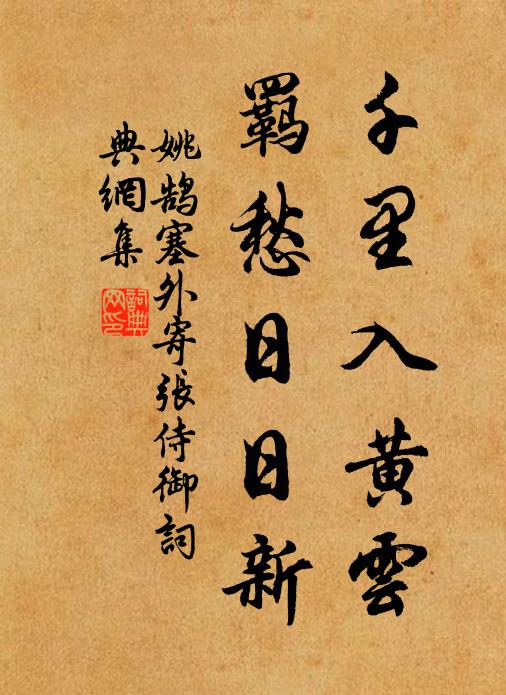 千里入黃雲
羈愁日日新
姚鵠塞外寄張侍御詞
典網集
詞典網印